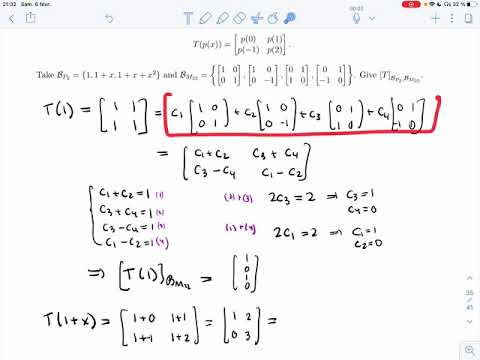 21:32 Sam. 6 févr. 00:03 32 %
T(p(x)) = [p(0) p(1)
p(-1) p(2)].
Take B_P2 = {1, 1 + x, 1 + x + x²} and B_M22 = {[1 0; 0 1], [1 0; 0 -1], [0 1; 1 0], [0 1; -1 0]}. Give [T]_B_P2,B_M22.
T(1) = [1 1; 1 1] = C₁[1 0; 0 1] + C₂[1 0; 0 -1] + C₃[0 1; 1 0] + C₄[0 1; -1 0]
= [C₁+C₂ C₃+C₄; C₃-C₄ C₁-C₂]
C₁+C₂ = 1 (1)
C₃+C₄ = 1 (2) (2)+(3) 2C₃ = 2 ⇒ C₃=1
C₄=0
C₃-C₄ = 1 (3)
C₁-C₂ = 1 (4) (1)+(4) 2C₁ = 2 ⇒ C₁=1
C₂=0
⇒ [T(1)]_B_M22 = [1; 0; 1; 0]
T(1+x) = [1+0 1+1; 1+-1 1+2] = [1 2; 0 3] =
35
41